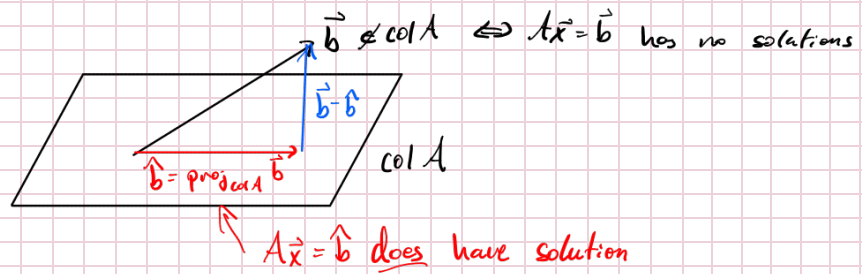 b⃗ ∉ col A ⇔ Ax⃗ = b⃗ has no solutions
b⃗ - b̂
b̂ = proj_{col A} b⃗
col A
Ax⃗ = b̂ does have solution